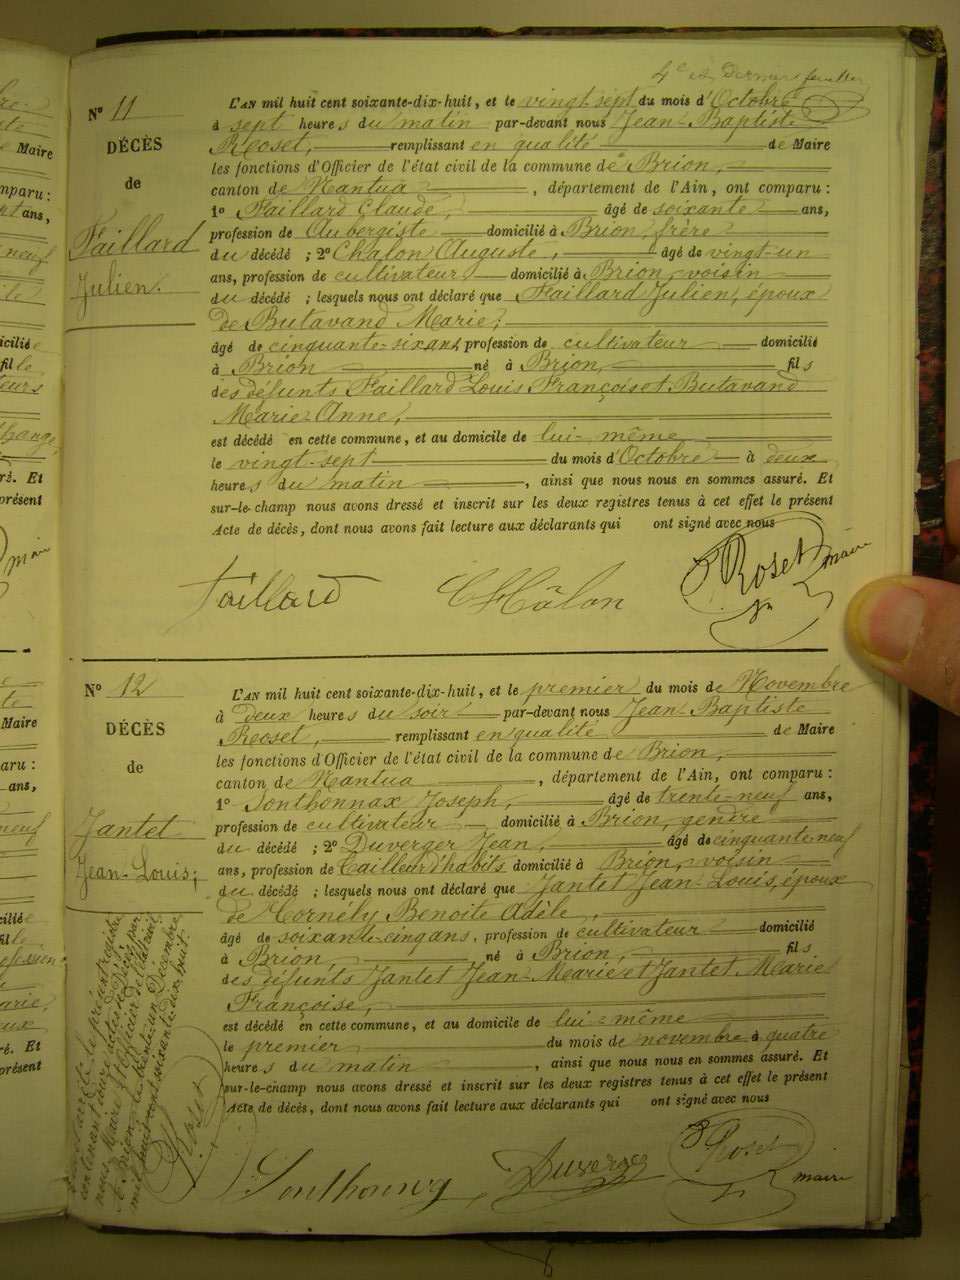 4e et Dernier feuillet
No 11
DÉCÈS
de
Faillard
Julien.
L'AN mil huit cent soixante-dix-huit, et le vingt-sept du mois d'Octobre
à sept heures du matin par-devant nous Jean-Baptiste
Roset, remplissant en qualité de Maire
les fonctions d'Officier de l'état civil de la commune de Brion,
canton de Nantua, département de l'Ain, ont comparu :
1o Faillard Claude, âgé de soixante ans,
profession de Aubergiste domicilié à Brion, frère
du décédé ; 2o Chalon Auguste, âgé de vingt-un
ans, profession de cultivateur domicilié à Brion, voisin
du décédé ; lesquels nous ont déclaré que Faillard Julien, époux
de Butavand Marie,
âgé de cinquante-six ans, profession de cultivateur domicilié
à Brion né à Brion, fils
des défunts Faillard Louis François et Butavand
Marie-Anne,
est décédé en cette commune, et au domicile de lui-même
le vingt-sept du mois d'Octobre à deux
heures du matin, ainsi que nous nous en sommes assuré. Et
sur-le-champ nous avons dressé et inscrit sur les deux registres tenus à cet effet le présent
Acte de décès, dont nous avons fait lecture aux déclarants qui ont signé avec nous
Faillard Châlon Roset maire
No 12
DÉCÈS
de
Jantet
Jean-Louis;
L'AN mil huit cent soixante-dix-huit, et le premier du mois de Novembre
à deux heures du soir par-devant nous Jean-Baptiste
Roset, remplissant en qualité de Maire
les fonctions d'Officier de l'état civil de la commune de Brion,
canton de Nantua, département de l'Ain, ont comparu :
1o Sonthonnax Joseph, âgé de trente-neuf ans,
profession de cultivateur domicilié à Brion, gendre
du décédé ; 2o Duverger Jean, âgé de cinquante-neuf
ans, profession de Tailleur d'habits domicilié à Brion, voisin
du décédé ; lesquels nous ont déclaré que Jantet Jean-Louis, époux
de Cornély Benoite Adèle,
âgé de soixante-cinq ans, profession de cultivateur domicilié
à Brion, né à Brion, fils
des défunts Jantet Jean-Marie et Jantet Marie
Françoise,
est décédé en cette commune, et au domicile de lui-même
le premier du mois de novembre à quatre
heures du matin, ainsi que nous nous en sommes assuré. Et
sur-le-champ nous avons dressé et inscrit sur les deux registres tenus à cet effet le présent
Acte de décès, dont nous avons fait lecture aux déclarants qui ont signé avec nous
Sonthonnax Duverger Roset maire
le présent registre
contenant douze actes de Décès, par
nous, Maire et Officier de l'état civil
à Brion, le trente-un Décembre
mil huit cent soixante-dix-huit.
Roset